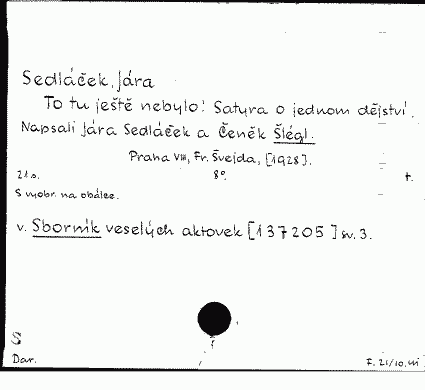 Sedláček, Jára
To tu ještě nebylo! Satyra o jednom dějství.
Napsali Jára Sedláček a Čeněk Šlégl.
Praha VIII, Fr. Švejda, [1928].
21 s. 8°. t.
S vyobr. na obálce.
v. Sborník veselých aktovek [137205] sv. 3.
S
Dar. F. 21/10.